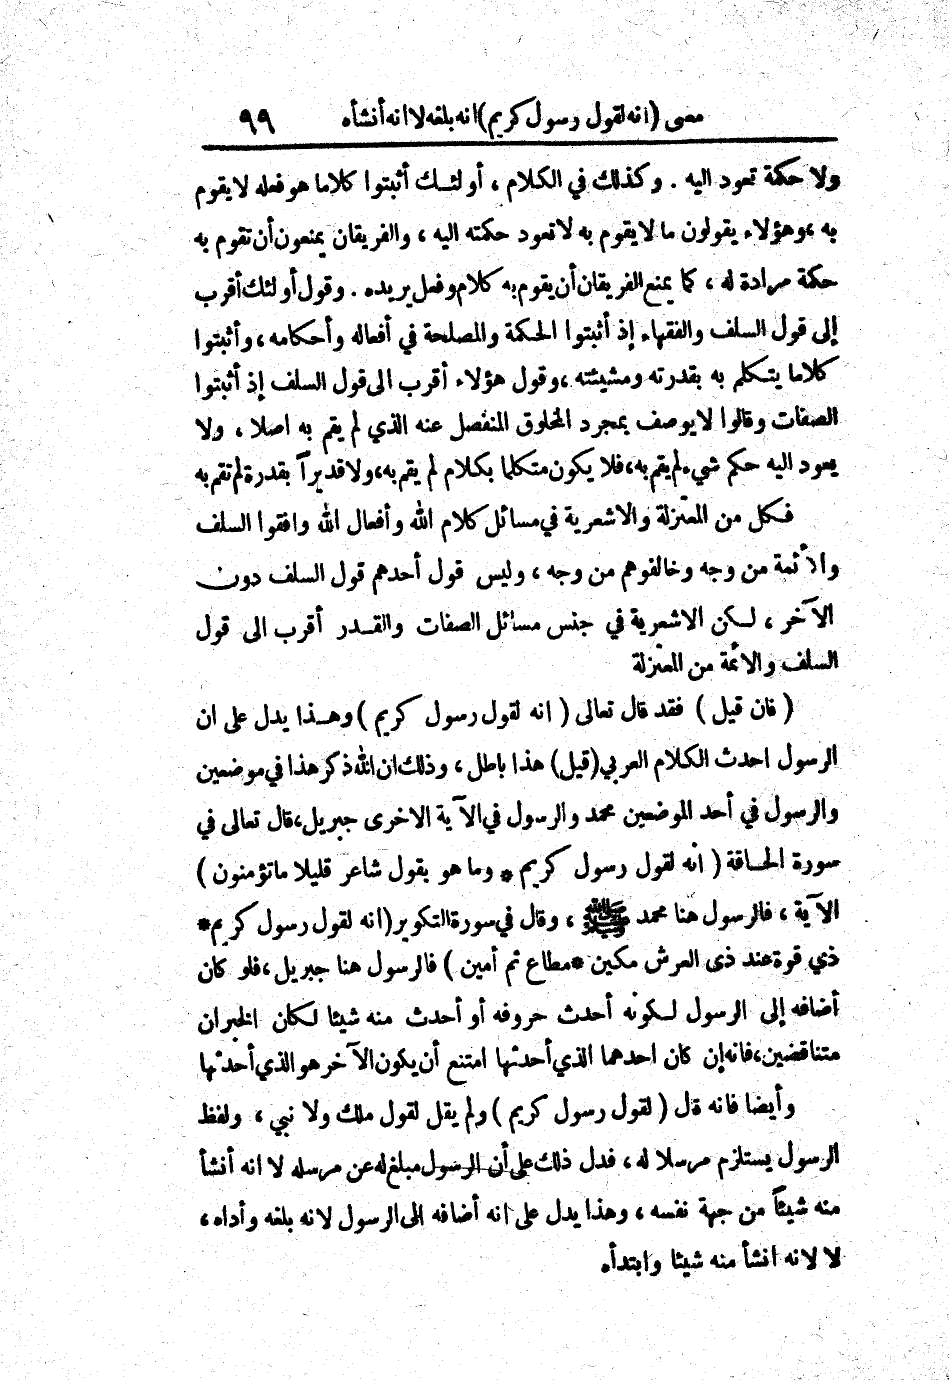 معنى (انه لقول رسول كريم) انه بلغه لا انه أنشأه ٩٩
ولا حكمة تعود اليه . وكذلك في الكلام ، أولئك أثبتوا كلاما هو فعله لا يقوم
به ، وهؤلاء يقولون ما لا يقوم به لا تعود حكمته اليه ، والفريقان يمنعون أن تقوم به
حكمة مرادة له ، كما يمنع الفريقان أن يقوم به كلام وفعل يريده . وقول أولئك أقرب
إلى قول السلف والفقهاء إذ أثبتوا الحكمة والمصلحة في أفعاله وأحكامه ، وأثبتوا
كلاما يتكلم به بقدرته ومشيئته ، وقول هؤلاء أقرب الى قول السلف إذ أثبتوا
الصفات وقالوا لا يوصف بمجرد المخلوق المنفصل عنه الذي لم يقم به اصلا ، ولا
يعود اليه حكم شيء لم يقم به ، فلا يكون متكلما بكلام لم يقم به ، ولا قديراً بقدرة لم تقم به
فكل من المعتزلة والاشعرية في مسائل كلام الله وأفعال الله وافقوا السلف
والأئمة من وجه وخالفوهم من وجه ، وليس قول أحدهم قول السلف دون
الآخر ، لكن الاشعرية في جنس مسائل الصفات والقدر أقرب الى قول
السلف والائمة من المعتزلة
( فان قيل ) فقد قال تعالى ( انه لقول رسول كريم ) وهذا يدل على ان
الرسول احدث الكلام العربي (قيل) هذا باطل ، وذلك ان الله ذكر هذا في موضعين
والرسول في أحد الموضعين محمد والرسول في الآية الاخرى جبريل ، قال تعالى في
سورة الحاقة ( انه لقول رسول كريم * وما هو بقول شاعر قليلا ما تؤمنون )
الآية ، فالرسول هنا محمد ﷺ ، وقال في سورة التكوير (انه لقول رسول كريم *
ذي قوة عند ذى العرش مكين * مطاع ثم أمين ) فالرسول هنا جبريل ، فلو كان
أضافه إلى الرسول لكونه أحدث حروفه أو أحدث منه شيئا لكان الخبران
متناقضين ، فانه إن كان احدهما الذي أحدثها امتنع أن يكون الآخر هو الذي أحدثها
وأيضا فانه قال ( لقول رسول كريم ) ولم يقل لقول ملك ولا نبي ، ولفظ
الرسول يستلزم مرسلا له ، فدل ذلك على أن الرسول مبلغ له عن مرسله لا انه أنشأ
منه شيئاً من جهة نفسه ، وهذا يدل على انه أضافه الى الرسول لانه بلغه وأداه ،
لا لانه انشأ منه شيئا وابتدأه